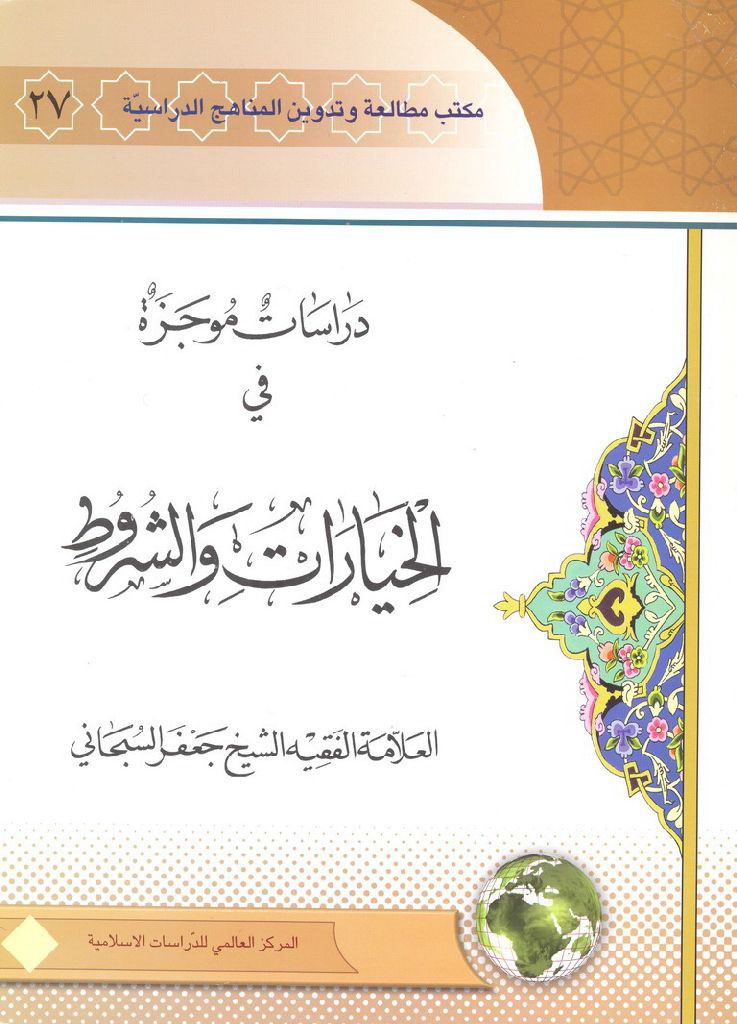 مكتب مطالعة وتدوين المناهج الدراسيّة ٢٧
دَرَاسَاتٌ مُوجَزَةٌ
في
الخِيَارَاتِ وَالشُرُوطِ
العلاّمة الفَقِيه الشيخ جَعْفَر السُبحَاني
المركز العالمي للدّراسات الاسلامية